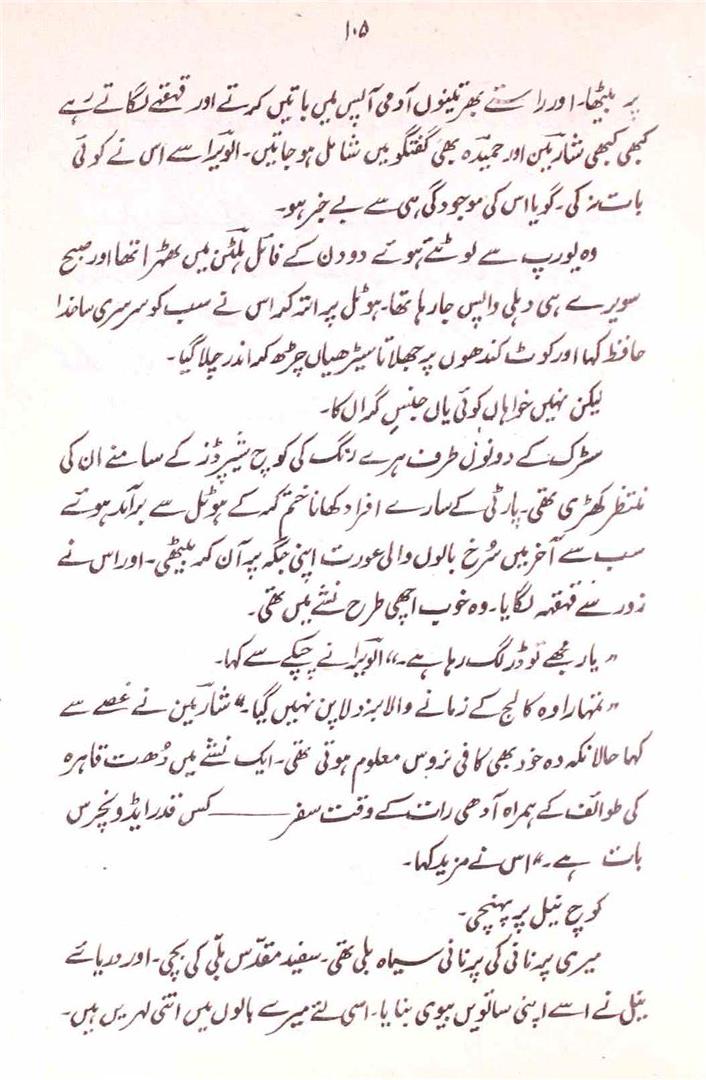 ۱۰۵
پر بیٹھا۔ اور راستے بھر تینوں آدمی آپس میں باتیں کرتے اور قہقہے لگاتے رہے
کبھی کبھی شارمین اور حمیدہ بھی گفتگو میں شامل ہو جاتیں۔ الویرا سے اس نے کوئی
بات نہ کی۔ گویا اس کی موجودگی ہی سے بے خبر ہو۔
وہ یورپ سے لوٹتے ہوئے دو دن کے لئے ہلٹن میں ٹھہرا تھا اور صبح
سویرے ہی دہلی واپس جا رہا تھا۔ ہوٹل پر اتر کر اس نے سب کو سرسری سا خدا
حافظ کہا اور کوٹ کندھوں پر جھلاتا سیڑھیاں چڑھ کر اندر چلا گیا۔
لیکن نہیں خواہاں کوئی یاں جنسِ گراں کا۔
سڑک کے دونوں طرف ہرے رنگ کی کوچ شیپرڈز کے سامنے ان کی
منتظر کھڑی تھی۔ پارٹی کے سارے افراد کھانا ختم کر کے ہوٹل سے برآمد ہوئے
سب سے آخر میں سُرخ بالوں والی عورت اپنی جگہ پر آن کر بیٹھی۔ اور اس نے
زور سے قہقہہ لگایا۔ وہ خوب اچھی طرح نشے میں تھی۔
”یار مجھے تو ڈر لگ رہا ہے۔“ الویرا نے چپکے سے کہا۔
”تمہارا وہ کالج کے زمانے والا بزدلا پن نہیں گیا۔“ شارمین نے غصے سے
کہا حالانکہ وہ خود بھی کافی نروس معلوم ہوتی تھی۔ ایک نشے میں دُھت قاہرہ
کی طوائف کے ہمراہ آدھی رات کے وقت سفر ——— کس قدر ایڈونچرس
بات ہے۔“ اس نے مزید کہا۔
کوچ نیل پر پہنچی۔
میری پرنانی کی پرنانی سیاہ بلی تھی۔ سفید مقدّس بلّی کی بچی۔ اور دریائے
نیل نے اسے اپنی ساتویں بیوی بنایا۔ اسی لئے میرے بالوں میں اتنی لہریں ہیں۔